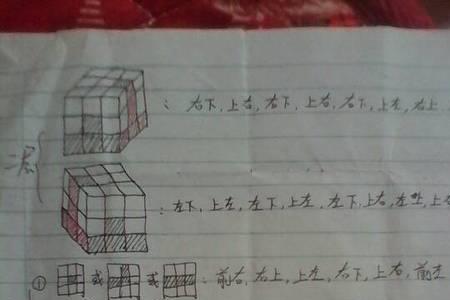 : 右下, 上右, 右下, 上右, 右下, 上左, 右上
二层
: 左下, 上左, 左下, 上左, 左下, 上右, 左上, 上
① 或 或 : 前右, 右上, 上左, 右下, 上右, 前左